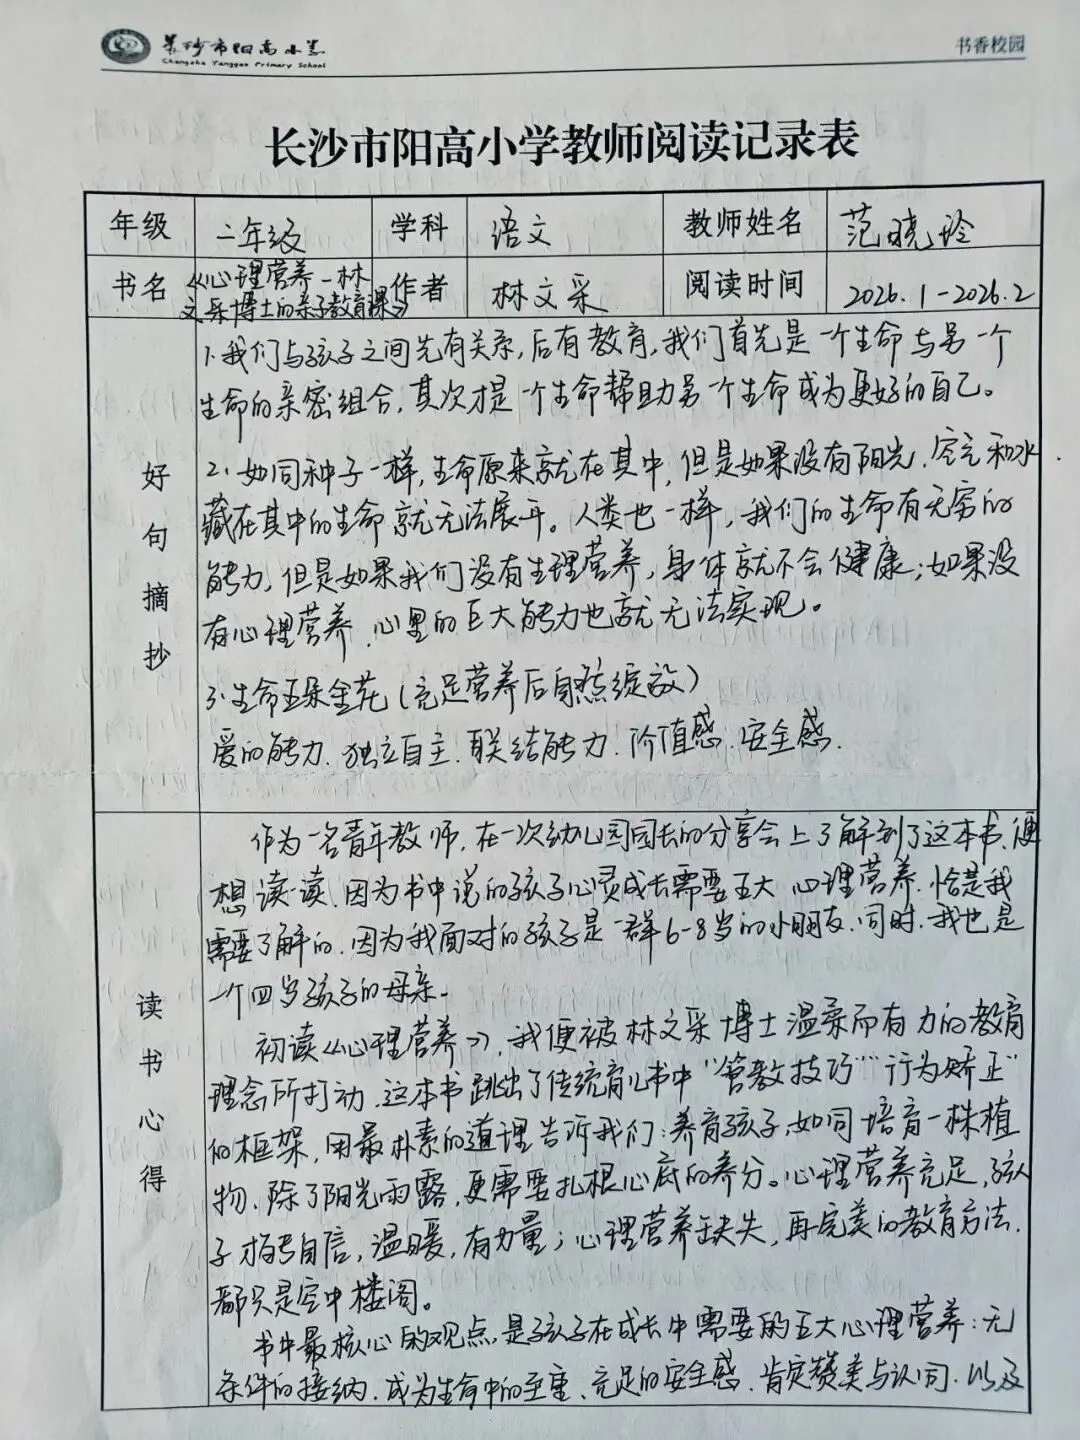 长沙市阳高小学
Changsha Yanggao Primary School
书香校园
长沙市阳高小学教师阅读记录表
年级 二年级 学科 语文 教师姓名 范晓玲
书名 《心理营养—林文采博士的亲子教育课》 作者 林文采 阅读时间 2026.1-2026.2
好句摘抄
1.我们与孩子之间先有关系,后有教育,我们首先是一个生命与另一个
生命的亲密组合,其次才是一个生命帮助另一个生命成为更好的自己。
2.如同种子一样,生命原来就在其中,但是如果没有阳光、空气和水.
藏在其中的生命就无法展开。人类也一样,我们的生命有无穷的
能力,但是如果我们没有生理营养,身体就不会健康;如果没
有心理营养,心里的巨大能力也就无法实现。
3.生命五朵金花(充足营养后自然绽放)
爱的能力、独立自主、联结能力、价值感、安全感.
读书心得
作为一名青年教师,在一次幼儿园园长的分享会上了解到了这本书,便
想读一读,因为书中说的孩子心灵成长需要五大心理营养,恰是我
需要了解的,因为我面对的孩子是一群6-8岁的小朋友,同时,我也是
一个四岁孩子的母亲。
初读《心理营养》,我便被林文采博士温柔而有力的教育
理念所打动,这本书跳出了传统育儿书中“管教技巧”“行为矫正”
的框架,用最朴素的道理告诉我们:养育孩子,如同培育一株植
物,除了阳光雨露,更需要扎根心底的养分。心理营养充足,孩
子才能自信,温暖,有力量;心理营养缺失,再完美的教育方法,
都只是空中楼阁。
书中最核心的观点,是孩子在成长中需要的五大心理营养:无
条件的接纳、成为生命中的至重、充足的安全感、肯定赞美与认同、以及